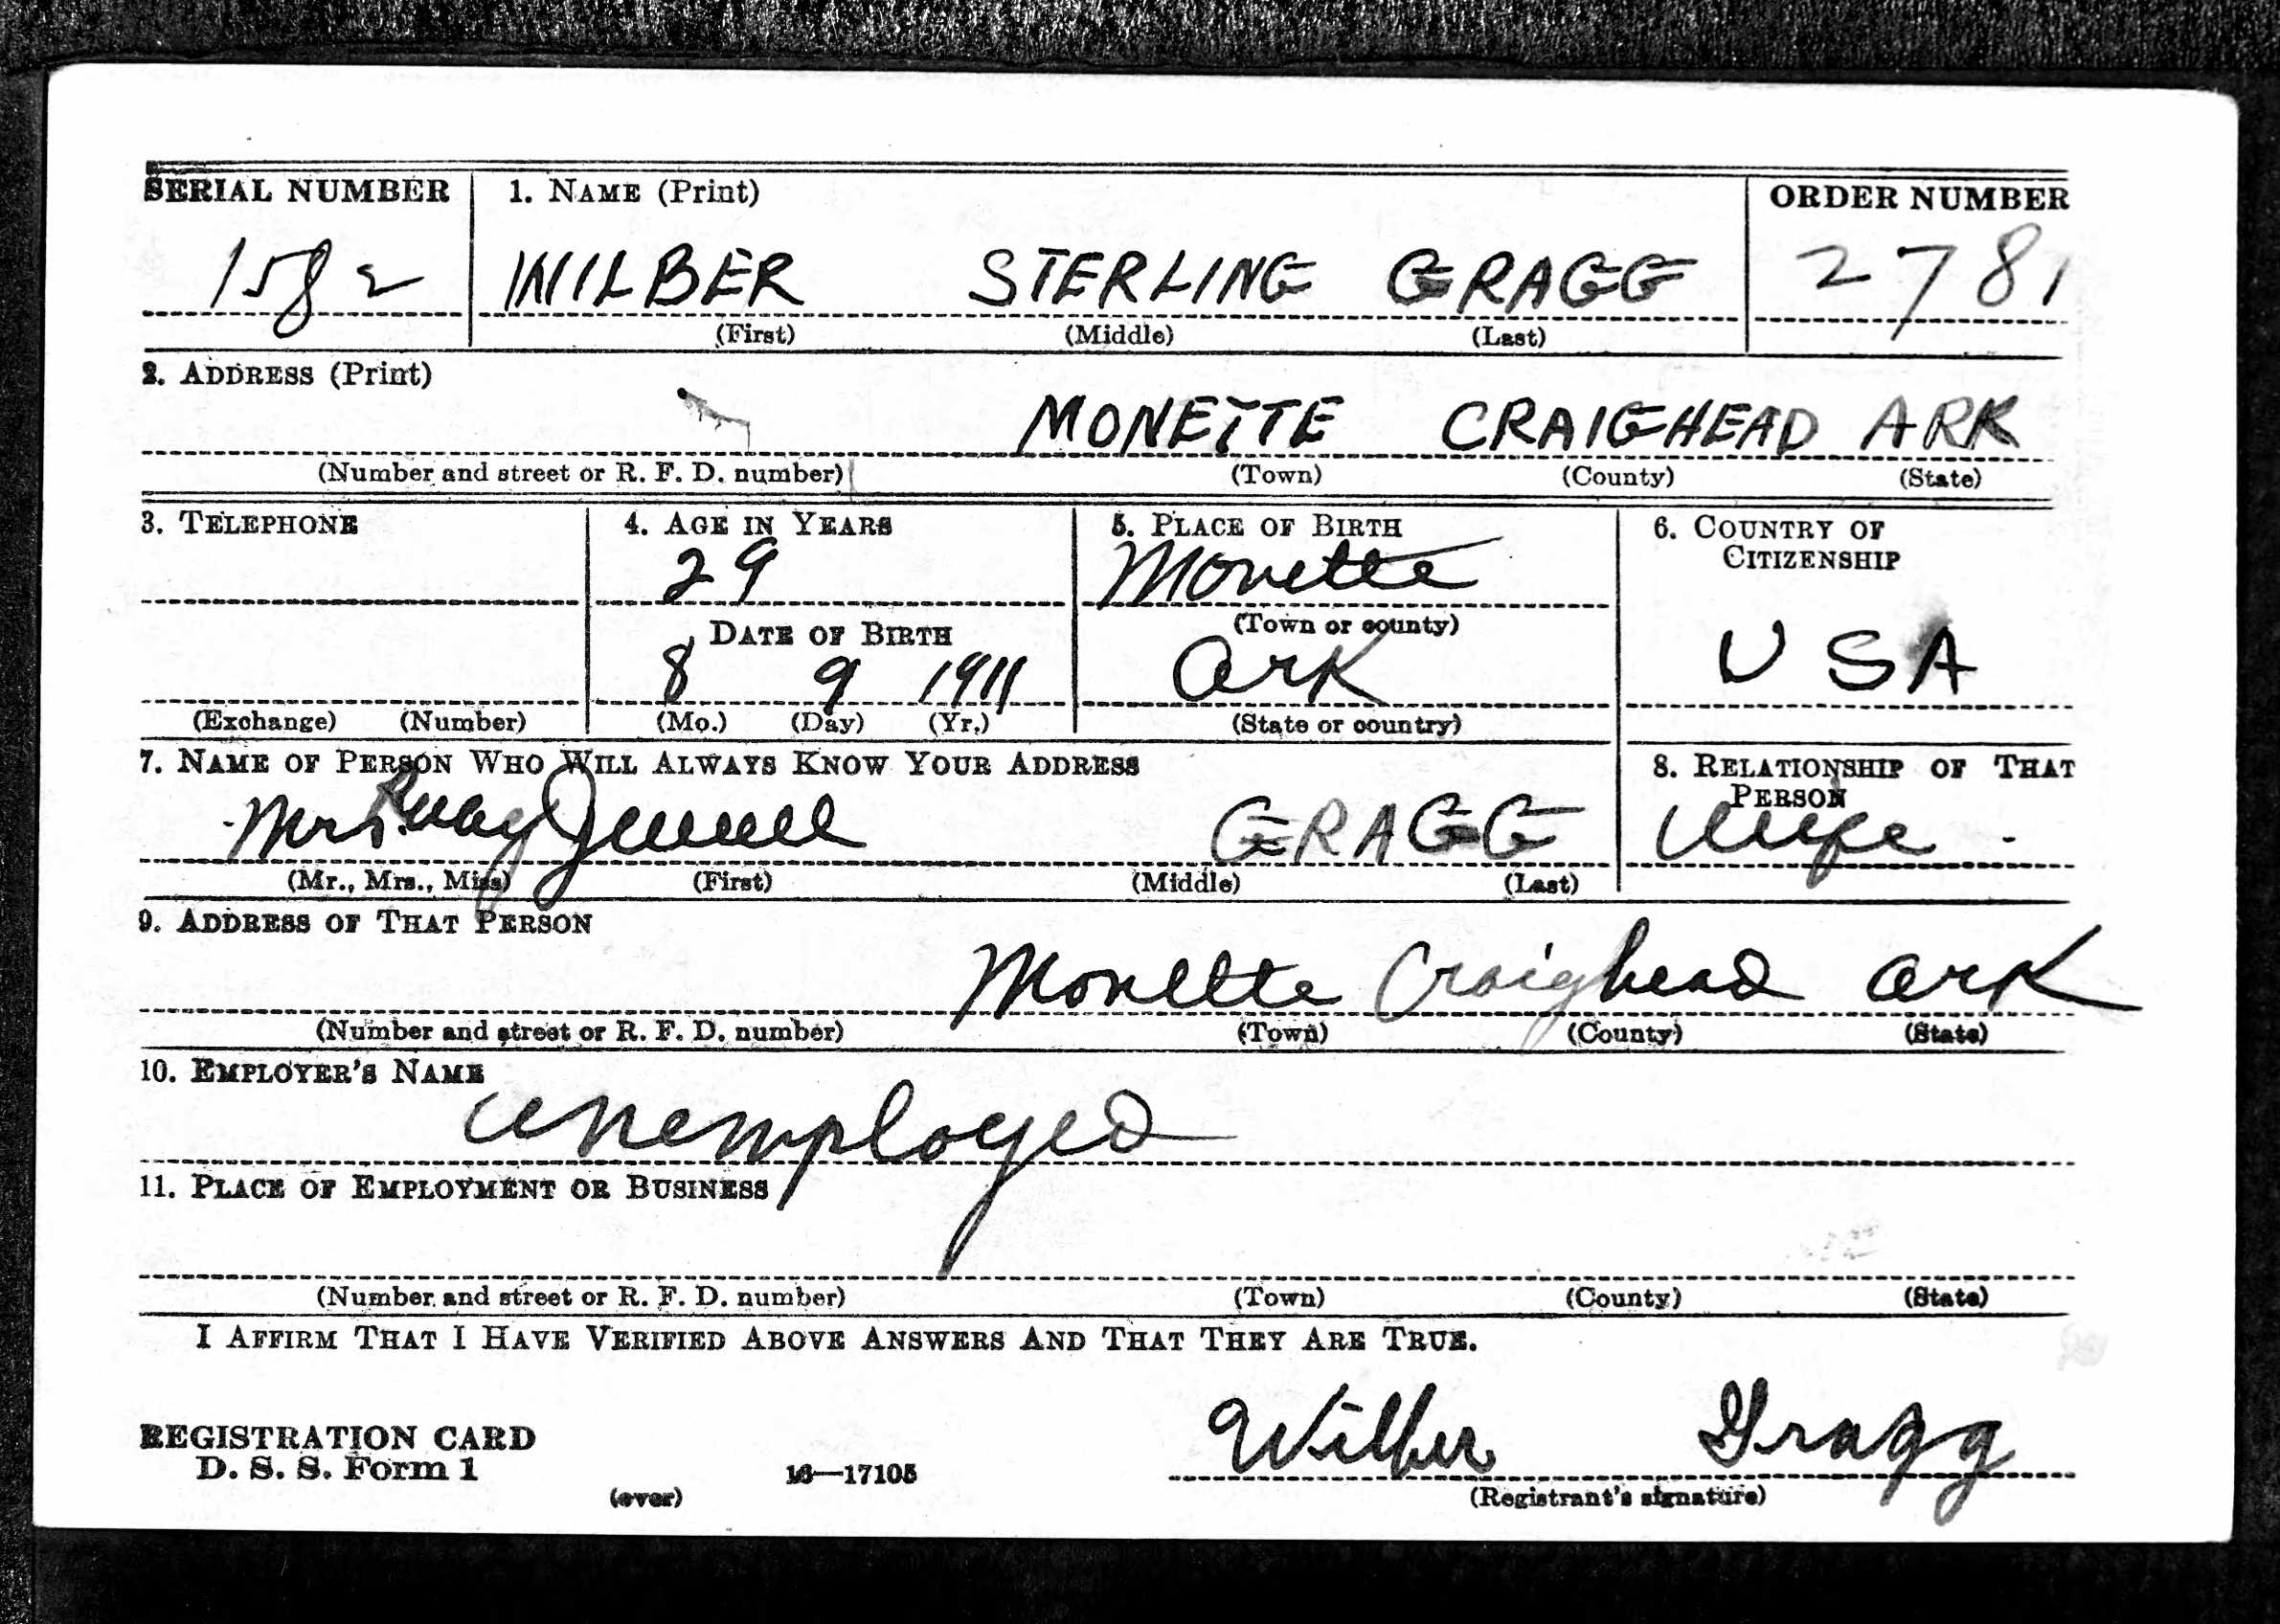 SERIAL NUMBER 1. NAME (Print) ORDER NUMBER
1582 WILBER STERLING GRAGG 2781
(First) (Middle) (Last)
2. ADDRESS (Print)
MONETTE CRAIGHEAD ARK
(Number and street or R. F. D. number) (Town) (County) (State)
3. TELEPHONE 4. AGE IN YEARS 5. PLACE OF BIRTH 6. COUNTRY OF
CITIZENSHIP
29 Monette
(Town or county)
DATE OF BIRTH
8 9 1911 Ark USA
(Exchange) (Number) (Mo.) (Day) (Yr.) (State or country)
7. NAME OF PERSON WHO WILL ALWAYS KNOW YOUR ADDRESS 8. RELATIONSHIP OF THAT
PERSON
Mrs Jewell GRAGG Wife
(Mr., Mrs., Miss) (First) (Middle) (Last)
9. ADDRESS OF THAT PERSON
Monette Craighead Ark
(Number and street or R. F. D. number) (Town) (County) (State)
10. EMPLOYER'S NAME
unemployed
11. PLACE OF EMPLOYMENT OR BUSINESS
(Number and street or R. F. D. number) (Town) (County) (State)
I AFFIRM THAT I HAVE VERIFIED ABOVE ANSWERS AND THAT THEY ARE TRUE.
Wilber Gragg
REGISTRATION CARD
D. S. S. Form 1 16—17105
(over) (Registrant's signature)